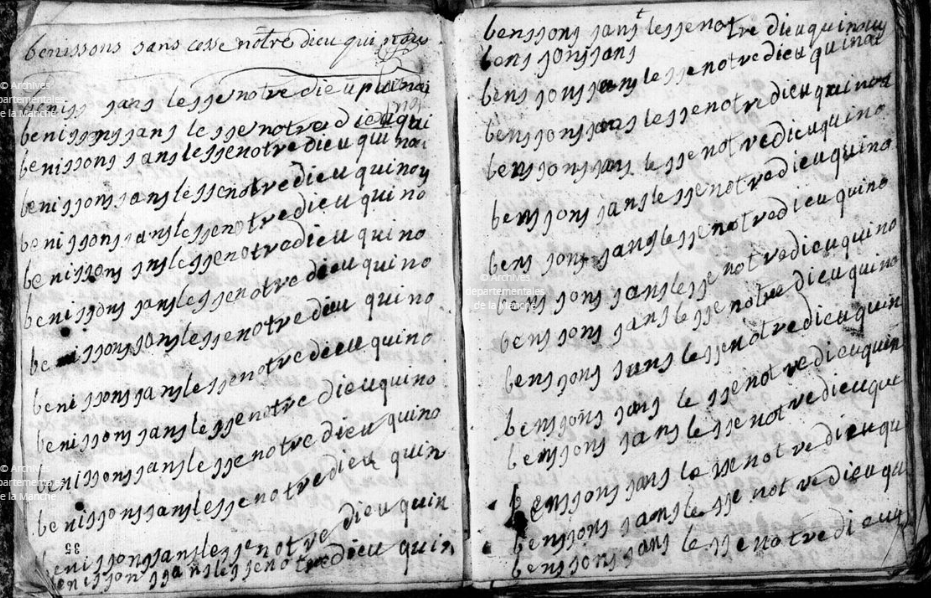 benissons sans cesse notre dieu qui nous
beniss sans lessenotre dieu
benissonssans lessenotre dieuqui
benissons sanslessenotre dieu qui noi
benissonssanslessenotredieu quinoy
benissonssanslessenotredieu qui no
benissons sanslessenotredieu qui no
benissons sanslessenotredieu qui no
benissonssanslessenotre dieu qui no
benissonssanslessenotre dieu quino
benissons sanslessenotre dieuquino
benissonssanslessenotre dieu quino
benissonssanslessenotredieu quin
benissonssanslessenotre dieu quin
benissonssanslessenotredieu quin
35
benssons sans lessenotre dieu quinouy
bens sonssans
bens sonssans lessenotredieu quinoi
bens sonssans lessenotredieu quinoi
benssonssans lessenotredieuquino
bens sons sanslessenotredieuquino
bens sons sanslessenotredieu quino
bens sons sanslesse notredieuquino
bens sons sans lessenotre dieu quino
benssons sans lessenotredieuquin
benssons sans le ssenotre dieuquin
benssons sans lessenotredieuqui
benssons sans le ssenotre dieu qu
benssons sans lesse not vedieu qu
benssons sans le ssenotredieuq
© Archives
départementales
de la Manche
© Archives
départementales
de la Manche
© Archives
départementales
de la Manche